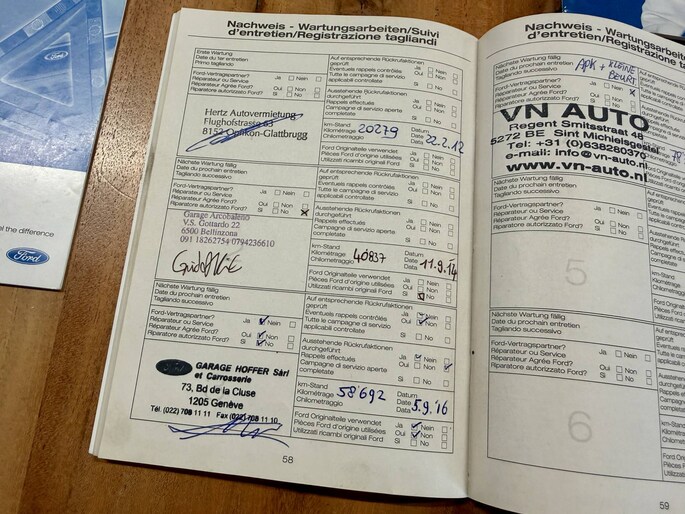 al the difference
Ford
Nachweis - Wartungsarbeiten/Suivi
d'entretien/Registrazione tagliandi
Erste Wartung
Date du 1er entretien
Primo tagliando
Ford-Vertragspartner?
Réparateur ou Service
Réparateur Agréé Ford?
Riparatore autorizzato Ford?
Ja Nein
Oui Non
Si No
Hertz Autovermietung
Flughofstrasse
8152 Opfikon-Glattbrugg
Auf entsprechende Rückrufaktionen
geprüft
Eventuels rappels contrôlés
Tutte le campagne di servizio
applicabili controllate
Ja Nein
Oui Non
Si No
Ausstehende Rückrufaktionen
durchgeführt
Rappels effectués
Campagne di servizio aperte
completate
Ja Nein
Oui Non
Si No
km-Stand
Kilométrage
Chilometraggio
20279
Datum
Date
Data
22.2.12
Ford Originalteile verwendet
Pièces Ford d'origine utilisées
Utilizzati ricambi originali Ford
Ja Nein
Oui Non
Si No
Nächste Wartung fällig
Date du prochain entretien
Tagliando successivo
Ford-Vertragspartner?
Réparateur ou Service
Réparateur Agréé Ford?
Riparatore autorizzato Ford?
Ja Nein
Oui Non
Si No
Garage Arcobaleno
V.S. Gottardo 22
6500 Bellinzona
091 18262754 0794236610
Auf entsprechende Rückrufaktionen
geprüft
Eventuels rappels contrôlés
Tutte le campagne di servizio
applicabili controllate
Ja Nein
Oui Non
Si No
Ausstehende Rückrufaktionen
durchgeführt
Rappels effectués
Campagne di servizio aperte
completate
Ja Nein
Oui Non
Si No
km-Stand
Kilométrage
Chilometraggio
40837
Datum
Date
Data
11.9.14
Ford Originalteile verwendet
Pièces Ford d'origine utilisées
Utilizzati ricambi originali Ford
Ja Nein
Oui Non
Si No
Nächste Wartung fällig
Date du prochain entretien
Tagliando successivo
Ford-Vertragspartner?
Réparateur ou Service
Réparateur Agréé Ford?
Riparatore autorizzato Ford?
Ja Nein
Oui Non
Si No
GARAGE HOFFER Sàrl
et Carrosserie
73, Bd de la Cluse
1205 Genève
Tél. (022) 708 11 11 Fax (022) 708 11 10
Auf entsprechende Rückrufaktionen
geprüft
Eventuels rappels contrôlés
Tutte le campagne di servizio
applicabili controllate
Ja Nein
Oui Non
Si No
Ausstehende Rückrufaktionen
durchgeführt
Rappels effectués
Campagne di servizio aperte
completate
Ja Nein
Oui Non
Si No
km-Stand
Kilométrage
Chilometraggio
58'692
Datum
Date
Data
5.9.16
Ford Originalteile verwendet
Pièces Ford d'origine utilisées
Utilizzati ricambi originali Ford
Ja Nein
Oui Non
Si No
58
Nachweis - Wartungsarbeite
d'entretien/Registrazione ta
Nächste Wartung fällig
Date du prochain entretien
Tagliando successivo
APK + KLEINE
BEURT
Ford-Vertragspartner?
Réparateur ou Service
Réparateur Agréé Ford?
Riparatore autorizzato Ford?
Ja Nein
Oui Non
Si No
VN AUTO
Regent Smitsstraat 48
5272 BE Sint Michielsgestel
Tel: +31 (0)638280370
e-mail: info@vn-auto.nl
www.vn-auto.nl
Nächste Wartung fällig
Date du prochain entretien
Tagliando successivo
Ford-Vertragspartner?
Réparateur ou Service
Réparateur Agréé Ford?
Riparatore autorizzato Ford?
Ja Nein
Oui Non
Si No
5
Nächste Wartung fällig
Date du prochain entretien
Tagliando successivo
Ford-Vertragspartner?
Réparateur ou Service
Réparateur Agréé Ford?
Riparatore autorizzato Ford?
Ja Nein
Oui Non
Si No
6
59